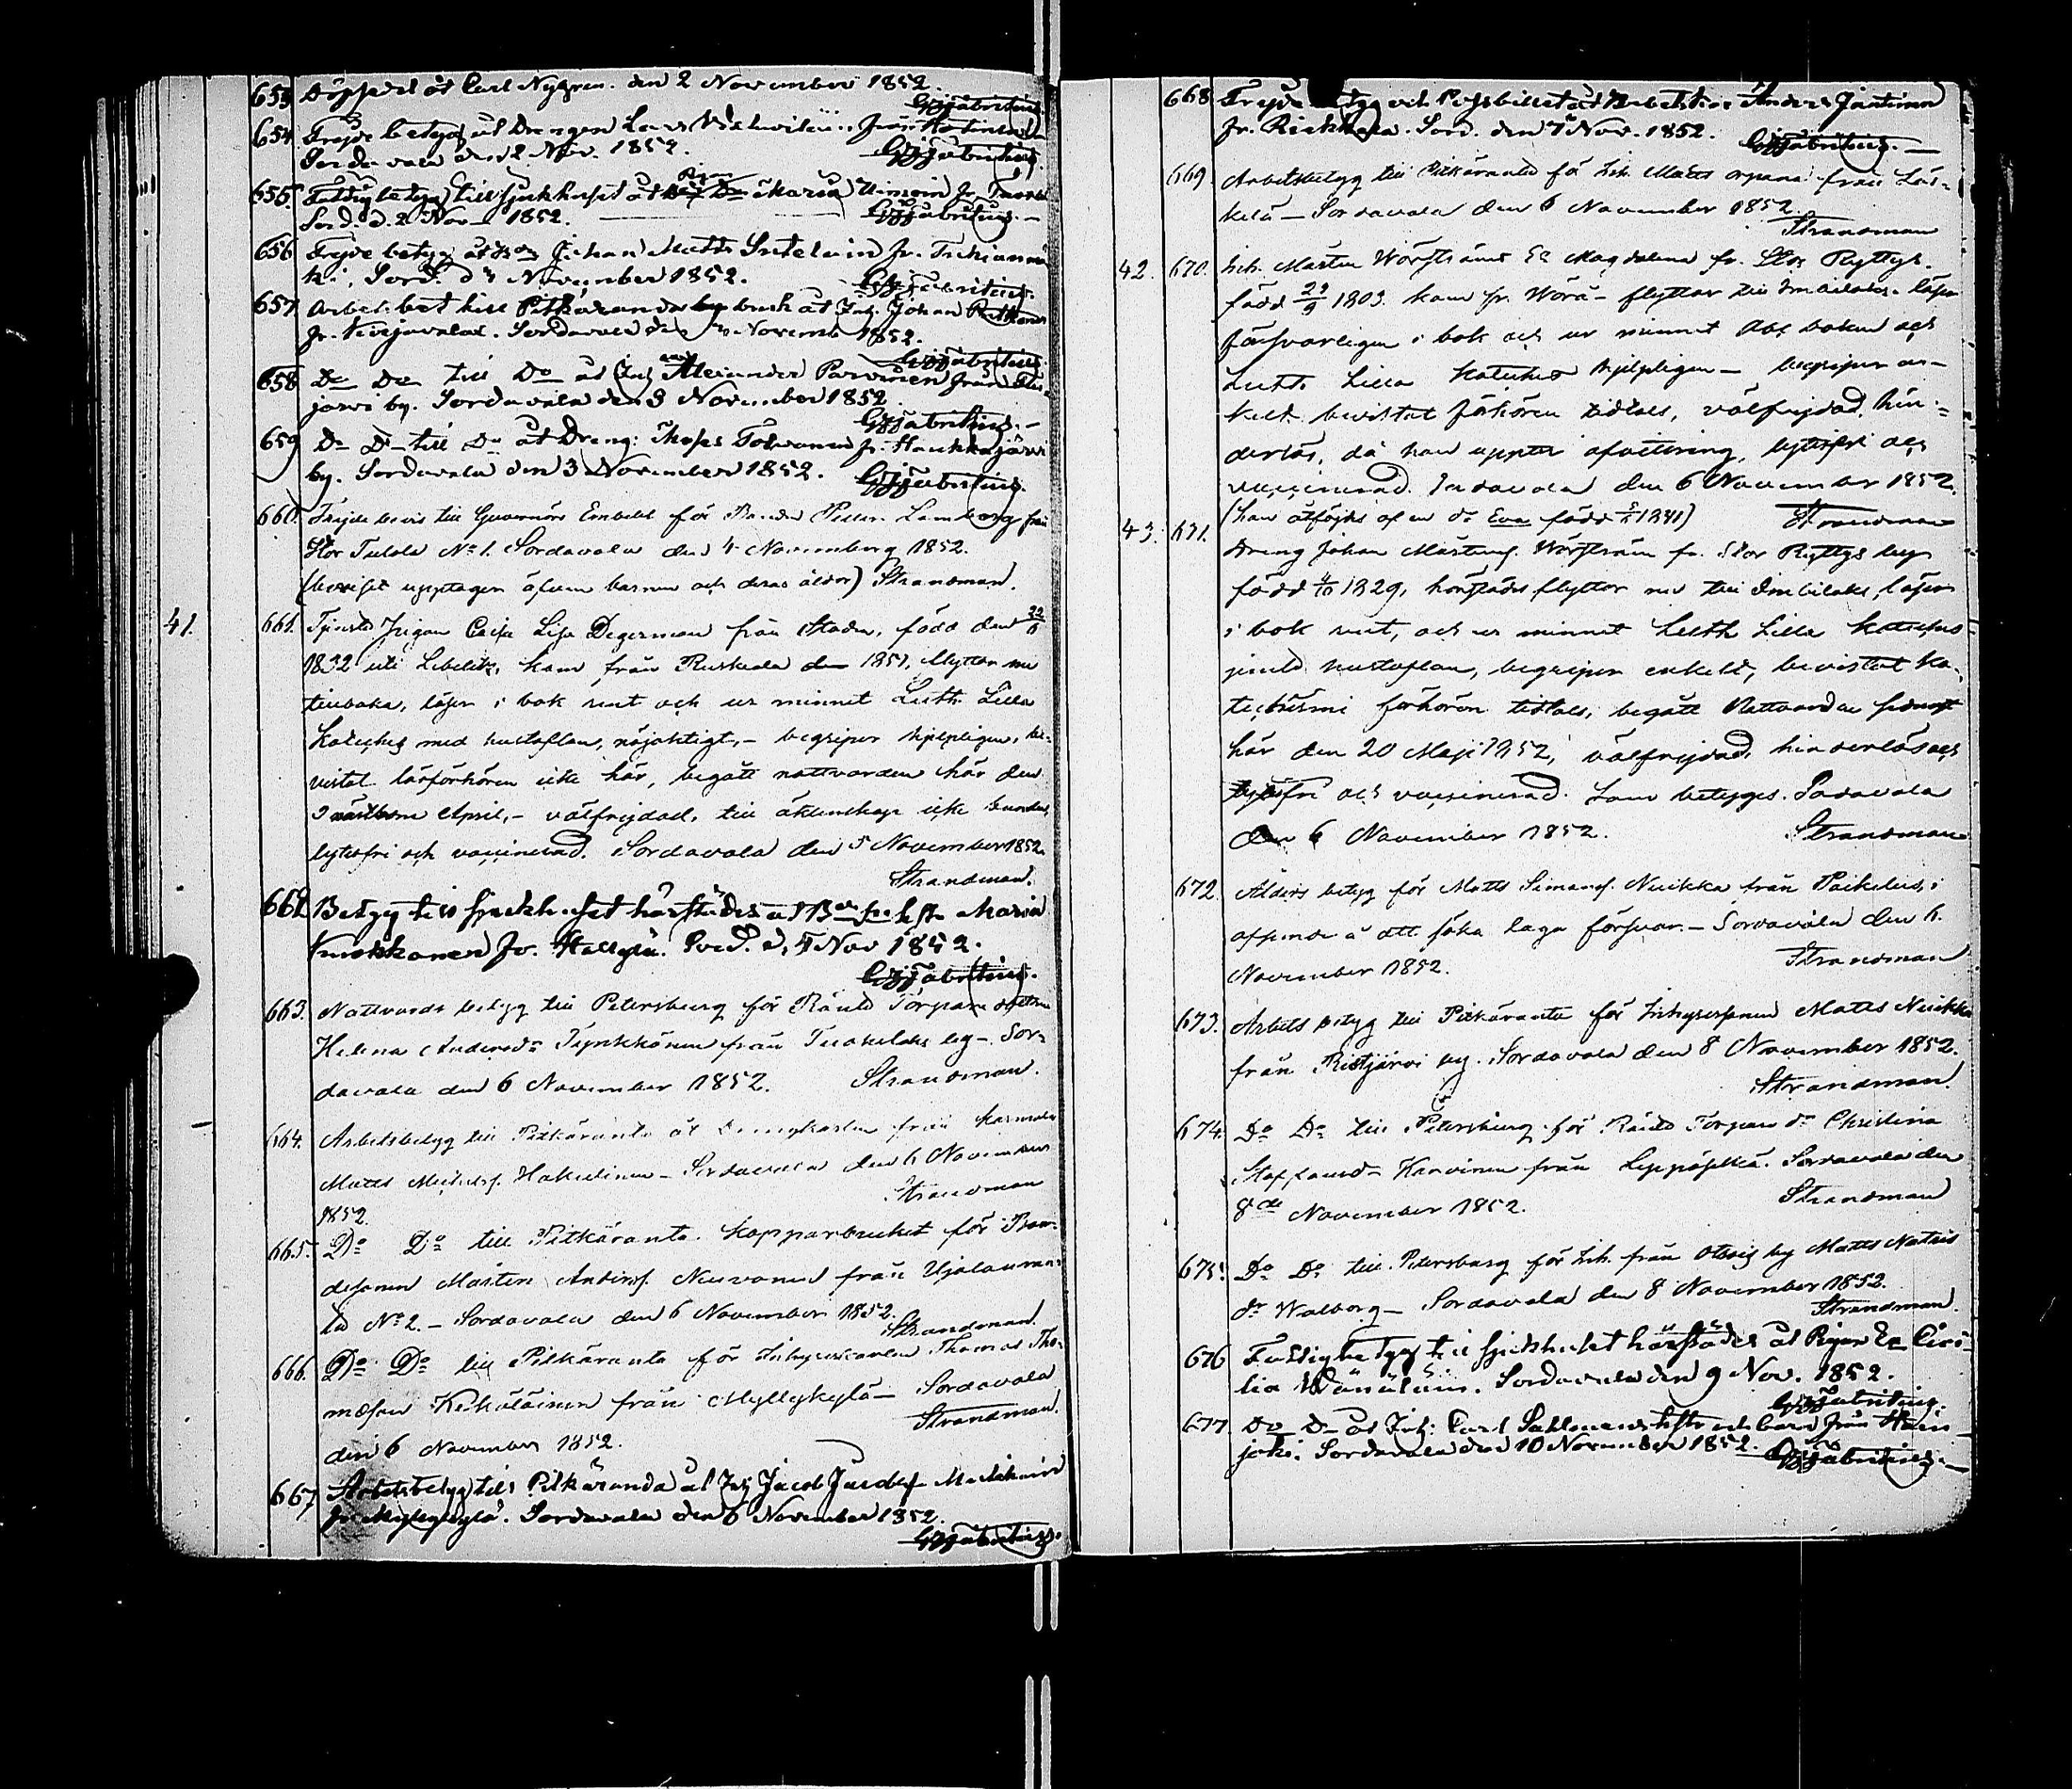 653 åt Carl Nygren. den 2 November 1852
GJFabritius.
654 Frejde betyg åt Drengen
Sordavala den 2 Nov. 1852.
GJFabritius.
Pigan
655. Fattigbetyg till sjukhuset åt Maria
Sord. d. 2 Nov 1852.
GJFabritius.
656 Frejde betyg åt Johan Matts fr.
Sord. d. 3 November 1852.
GJFabritius.
657 Arbets bet till Pitkäranda bruk åt Inh. Johan
fr. Kirjavalax. Sordavala den 3 Novemb 1852.
GJFabritius
658 Do Do till Do åt Inh Alexander Parvinen från
jarvi by. Sordavala den 3 November 1852.
GJFabritius.
659 Do Do till Do åt Dreng: Mops Tolvanen fr. Haukkajärvi
by. Sordavala den 3 November 1852.
GJFabritius.
660. Frejde bevis till Guvernörs Embetet för Bonden Petter Lamberg från
Stor Tulola No 1. Sordavala den 4 November 1852.
(beviset upptager äfven barnen och deras ålder) Strandman.
41. 661. Tjenste Pigan Caisa Lisa Degerman från Staden, född den 22/6
1832 uti Libelits, kom från Ruskiala den 1851, flyttar nu
tillbaka, läser i bok rent och ur minnet Luth. Lilla
Kateches med hustaflan, nöjaktigt, - begriper hjelpligen, be-
vistat läsförhören icke här, begått nattvarden här den
April, - välfrejdad, till äktenskap icke bunden,
lytesfri och vaccinerad. Sordavala den 5 November 1852.
Strandman.
662. Betyg till sjukhuset härstädes åt Maria
Kuokkanen fr. Sord. d. 4 Nov 1852.
GJFabritius.
663. Nattvards betyg till Petersburg för Torpare dottren
Helena Andersdr Tynkkönen från Tuokslaks by - Sor-
davala den 6 November 1852. Strandman.
664. Arbetsbetyg till Pitkäranta åt från
Matts Michelsf. Hakulinen - Sordavala den 6 November
1852. Strandman
665. Do Do till Pitkäranta Kopparbruket för Bon-
desonen Mårten Andersf. Neuvonen från
No 2. - Sordavala den 6 November 1852.
Strandman.
666. Do Do till Pitkäranta för Inhyseskarlen Thomas Tho-
masson Kekäläinen från Myllykylä - Sordavala
den 6 November 1852. Strandman.
667 Arbetsbetyg till Pitkäranda åt Inh Jacob Jacobsf.
fr. Myllykylä. Sordavala den 6 November 1852.
GJFabritius.
668 Frejde betyg och Anders Jantinen
fr. Riekkala. Sord. den 7 Nov. 1852.
GJFabritius.
669. Arbetsbetyg till Pitkäranta för Inh. Matts från Läs-
kelä - Sordavala den 6 November 1852.
Strandman
42. 670. Inh. Mårten Wörström Ea Magdalena fr. Stor Ryttys.
född 29/9 1803. kom fr. Wörå - flyttar till Imbilaks. läser
försvarligen i bok och ur minnet Abc boken och
Luth. Lilla Kateches hjelpligen - begriper en-
kelt bevistat förhören tidtals, välfrejdad, hin-
derlös, då han uppter afvittring, lytesfri och
vaccinerad. Sordavala den 6 November 1852.
(han åtföljes af en dr Eva född 1841) Strandman
43. 671.
Dreng Johan Mårtensf. Wörström fr. Stor Ryttys by
född 4/10 1829, härstädes flyttar nu till Imbilaks, läser
i bok rent, och ur minnet Luth Lilla Kateches
jemte hustaflan, begriper enkelt, bevistat Ka-
techismi förhören tidtals, begått Nattvarden sednast
här den 20 Maji 1852, välfrejdad, hinderlös och
lytesfri och vaccinerad. Som betygges. Sordavala
den 6 November 1852. Strandman
672. Ålders betyg för Matts Simonsf. Nuikka från
att söka laga försvar. - Sordavala den 6.
November 1852. Strandman
673. Arbets betyg till Pitkäranta för Inhysessonen Matts Nuikka
från Ristijärvi by. Sordavala den 8 November 1852.
Strandman.
674. Do Do till Petersburg för Torpare dr Christina
Staffansdr Karvinen från Leppäselkä. Sordavala den
8de November 1852. Strandman
675. Do Do till Petersburg för Inh. från Otsois by Matts
dr Walborg - Sordavala den 8 November 1852.
Strandman.
676 Fattigbetyg till sjukhuset härstädes åt Pigan Ea Ceci-
lia Wänäläin. Sordavala den 9 Nov. 1852.
GJFabritius.
677. Do Do åt Inh: Carl hstr och barn från
joki. Sordavala den 10 November 1852. GJFabritius.